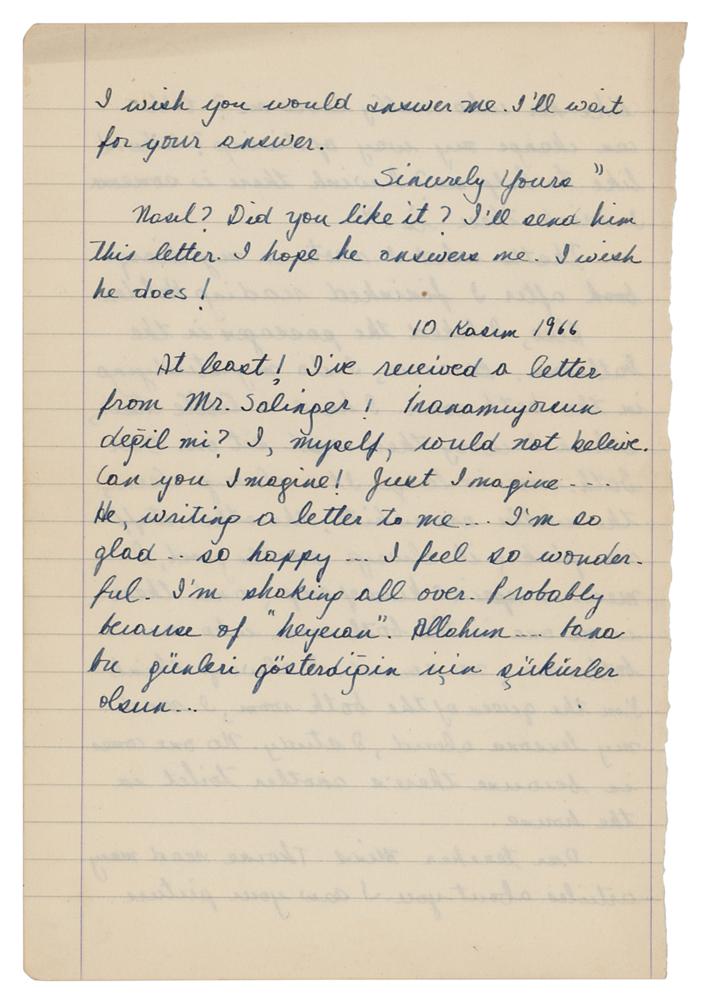 I wish you would answer me. I'll wait
for your answer.
Sincerely Yours "
Nasıl? Did you like it? I'll send him
this letter. I hope he answers me. I wish
he does!
10 Kasım 1966
At least! I've received a letter
from Mr. Salinger! İnanamıyorsun
değil mi? I, myself, would not beleive.
Can you Imagine! Just Imagine....
He, writing a letter to me... I'm so
glad.. so happy... I feel so wonder-
ful. I'm shaking all over. Probably
because of "heyecan". Allahım.... bana
bu günleri gösterdiğin için şükürler
olsun...